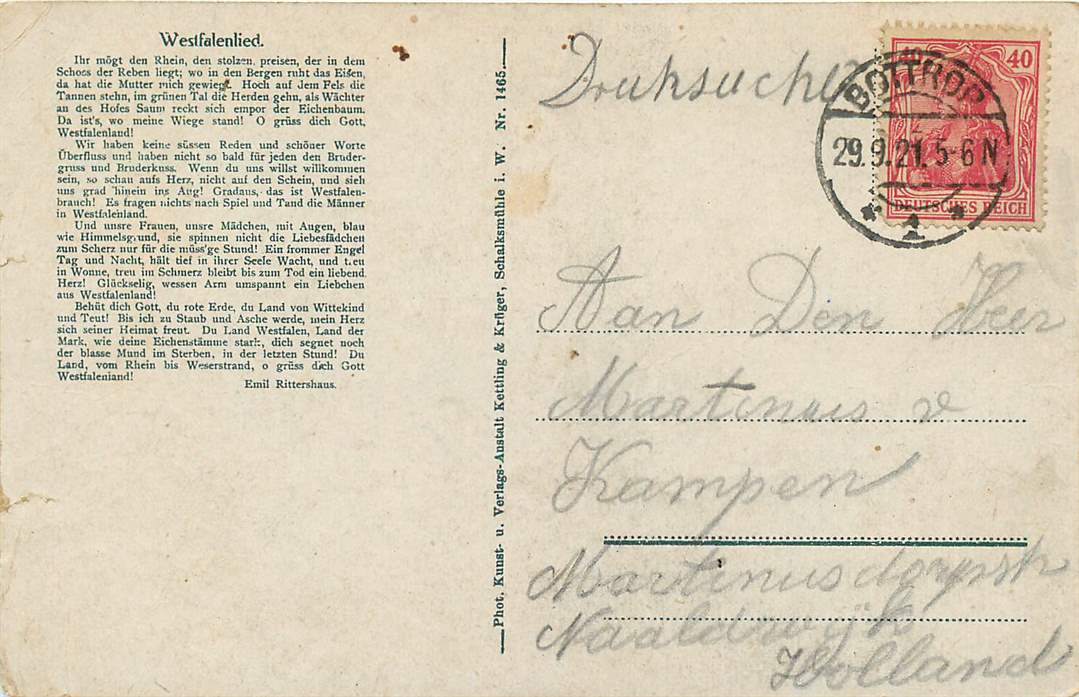 Westfalenlied.
Ihr mögt den Rhein, den stolzen, preisen, der in dem
Schoos der Reben liegt; wo in den Bergen ruht das Eisen,
da hat die Mutter mich gewiegt. Hoch auf dem Fels die
Tannen stehn, im grünen Tal die Herden gehn, als Wächter
an des Hofes Saum reckt sich empor der Eichenbaum.
Da ist's, wo meine Wiege stand! O grüss dich Gott,
Westfalenland!
Wir haben keine süssen Reden und schöner Worte
Überfluss und haben nicht so bald für jeden den Bruder-
gruss und Bruderkuss. Wenn du uns willst willkommen
sein, so schau aufs Herz, nicht auf den Schein, und sieh
uns grad hinein ins Aug! Gradaus, das ist Westfalen-
brauch! Es fragen nichts nach Spiel und Tand die Männer
in Westfalenland.
Und unsre Frauen, unsre Mädchen, mit Augen, blau
wie Himmelsgrund, sie spinnen nicht die Liebesfädchen
zum Scherz nur für die müss'ge Stund! Ein frommer Engel
Tag und Nacht, hält tief in ihrer Seele Wacht, und treu
in Wonne, treu im Schmerz bleibt bis zum Tod ein liebend
Herz! Glückselig, wessen Arm umspannt ein Liebchen
aus Westfalenland!
Behüt dich Gott, du rote Erde, du Land von Wittekind
und Teut! Bis ich zu Staub und Asche werde, mein Herz
sich seiner Heimat freut. Du Land Westfalen, Land der
Mark, wie deine Eichenstämme stark, dich segnet noch
der blasse Mund im Sterben, in der letzten Stund! Du
Land, vom Rhein bis Weserstrand, o grüss dich Gott
Westfalenland!
Emil Rittershaus.
Phot. Kunst- u. Verlags-Anstalt Kettling & Krüger, Schalksmühle i. W. Nr. 1465.
40 40
DEUTSCHES REICH
BOTTROP
29.9.21. 5-6 N
* 1 *
Aan Den Heer
Martinuis v
Kampen
Naaldwijk
Holland